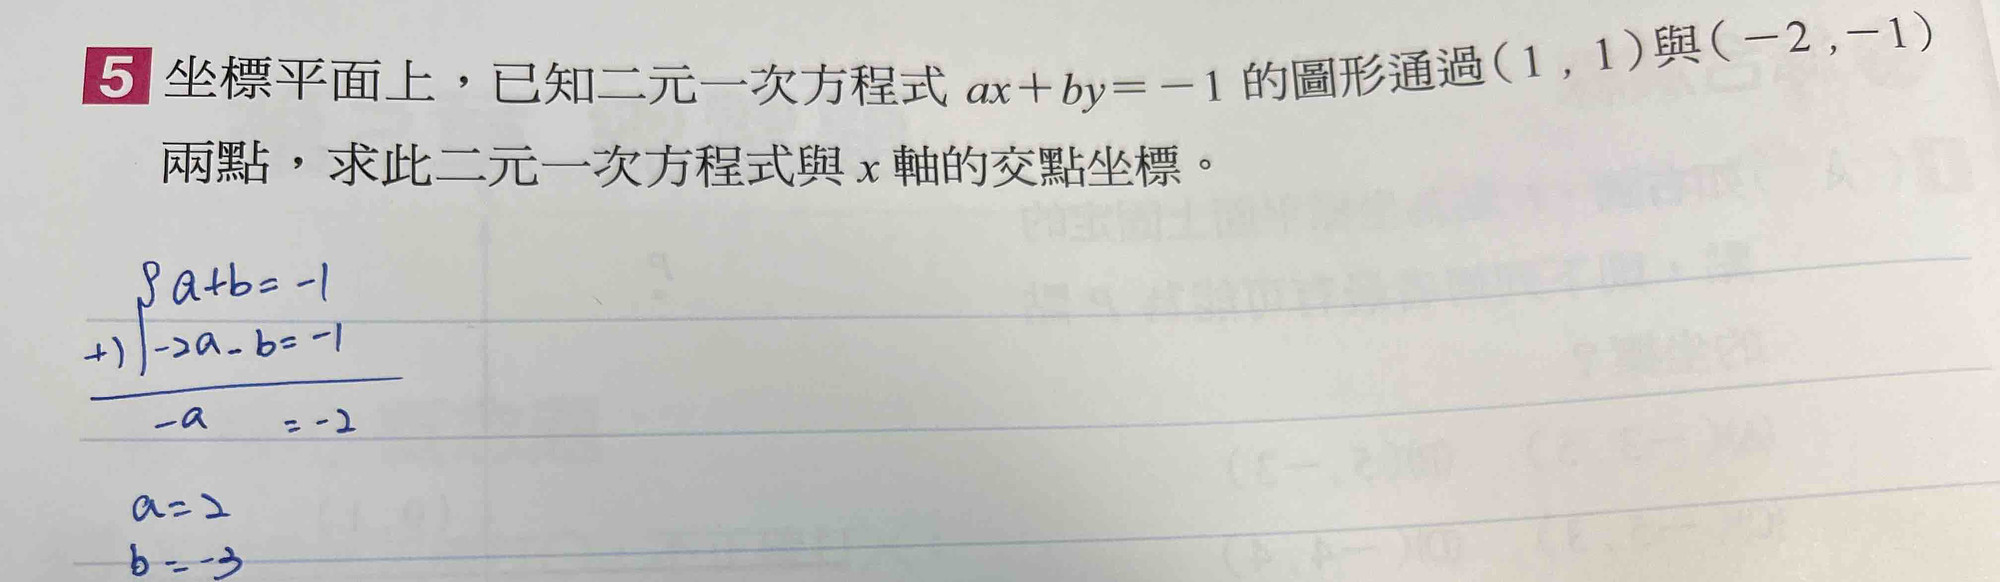 5 坐標平面上，已知二元一次方程式 ax+by=-1 的圖形通過(1,1)與(-2,-1)
兩點，求此二元一次方程式與 x 軸的交點坐標。
{a+b=-1
+) -2a-b=-1
-a =-2
a=2
b=-3